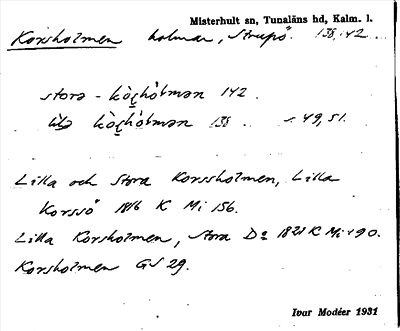 Misterhult sn, Tunaläns hd, Kalm. l.
Korsholmen holmar, Strupö. 138, 142
stora - kòʂhòlmən 142.
lilə kòʂhòlmən 138 s. 49, 51.
Lilla och Stora Korssholmen, Lilla
Korssö 1816 K Mi 156.
Lilla Korsholmen, Stora Dº 1821 K Mi 190.
Korsholmen GS 29.
Ivar Modéer 1931